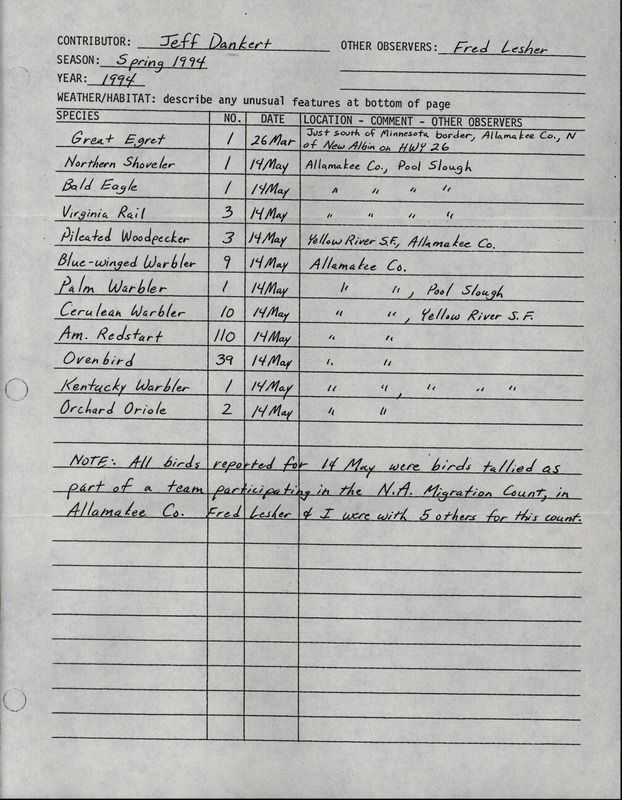 CONTRIBUTOR: Jeff Dankert OTHER OBSERVERS: Fred Lesher
SEASON: Spring 1994
YEAR: 1994
WEATHER/HABITAT: describe any unusual features at bottom of page
SPECIES NO. DATE LOCATION - COMMENT - OTHER OBSERVERS
Great Egret 1 26 Mar Just south of Minnesota border, Allamakee Co., N
of New Albin on HWY 26
Northern Shoveler 1 14 May Allamakee Co., Pool Slough
Bald Eagle 1 14 May " " " "
Virginia Rail 3 14 May " " " "
Pileated Woodpecker 3 14 May Yellow River S.F., Allamakee Co.
Blue-winged Warbler 9 14 May Allamakee Co.
Palm Warbler 1 14 May " ", Pool Slough
Cerulean Warbler 10 14 May " ", Yellow River S.F.
Am. Redstart 110 14 May " "
Ovenbird 39 14 May " "
Kentucky Warbler 1 14 May " ", " " "
Orchard Oriole 2 14 May " "
NOTE: All birds reported for 14 May were birds tallied as
part of a team participating in the N.A. Migration Count, in
Allamakee Co. Fred Lesher & I were with 5 others for this count.